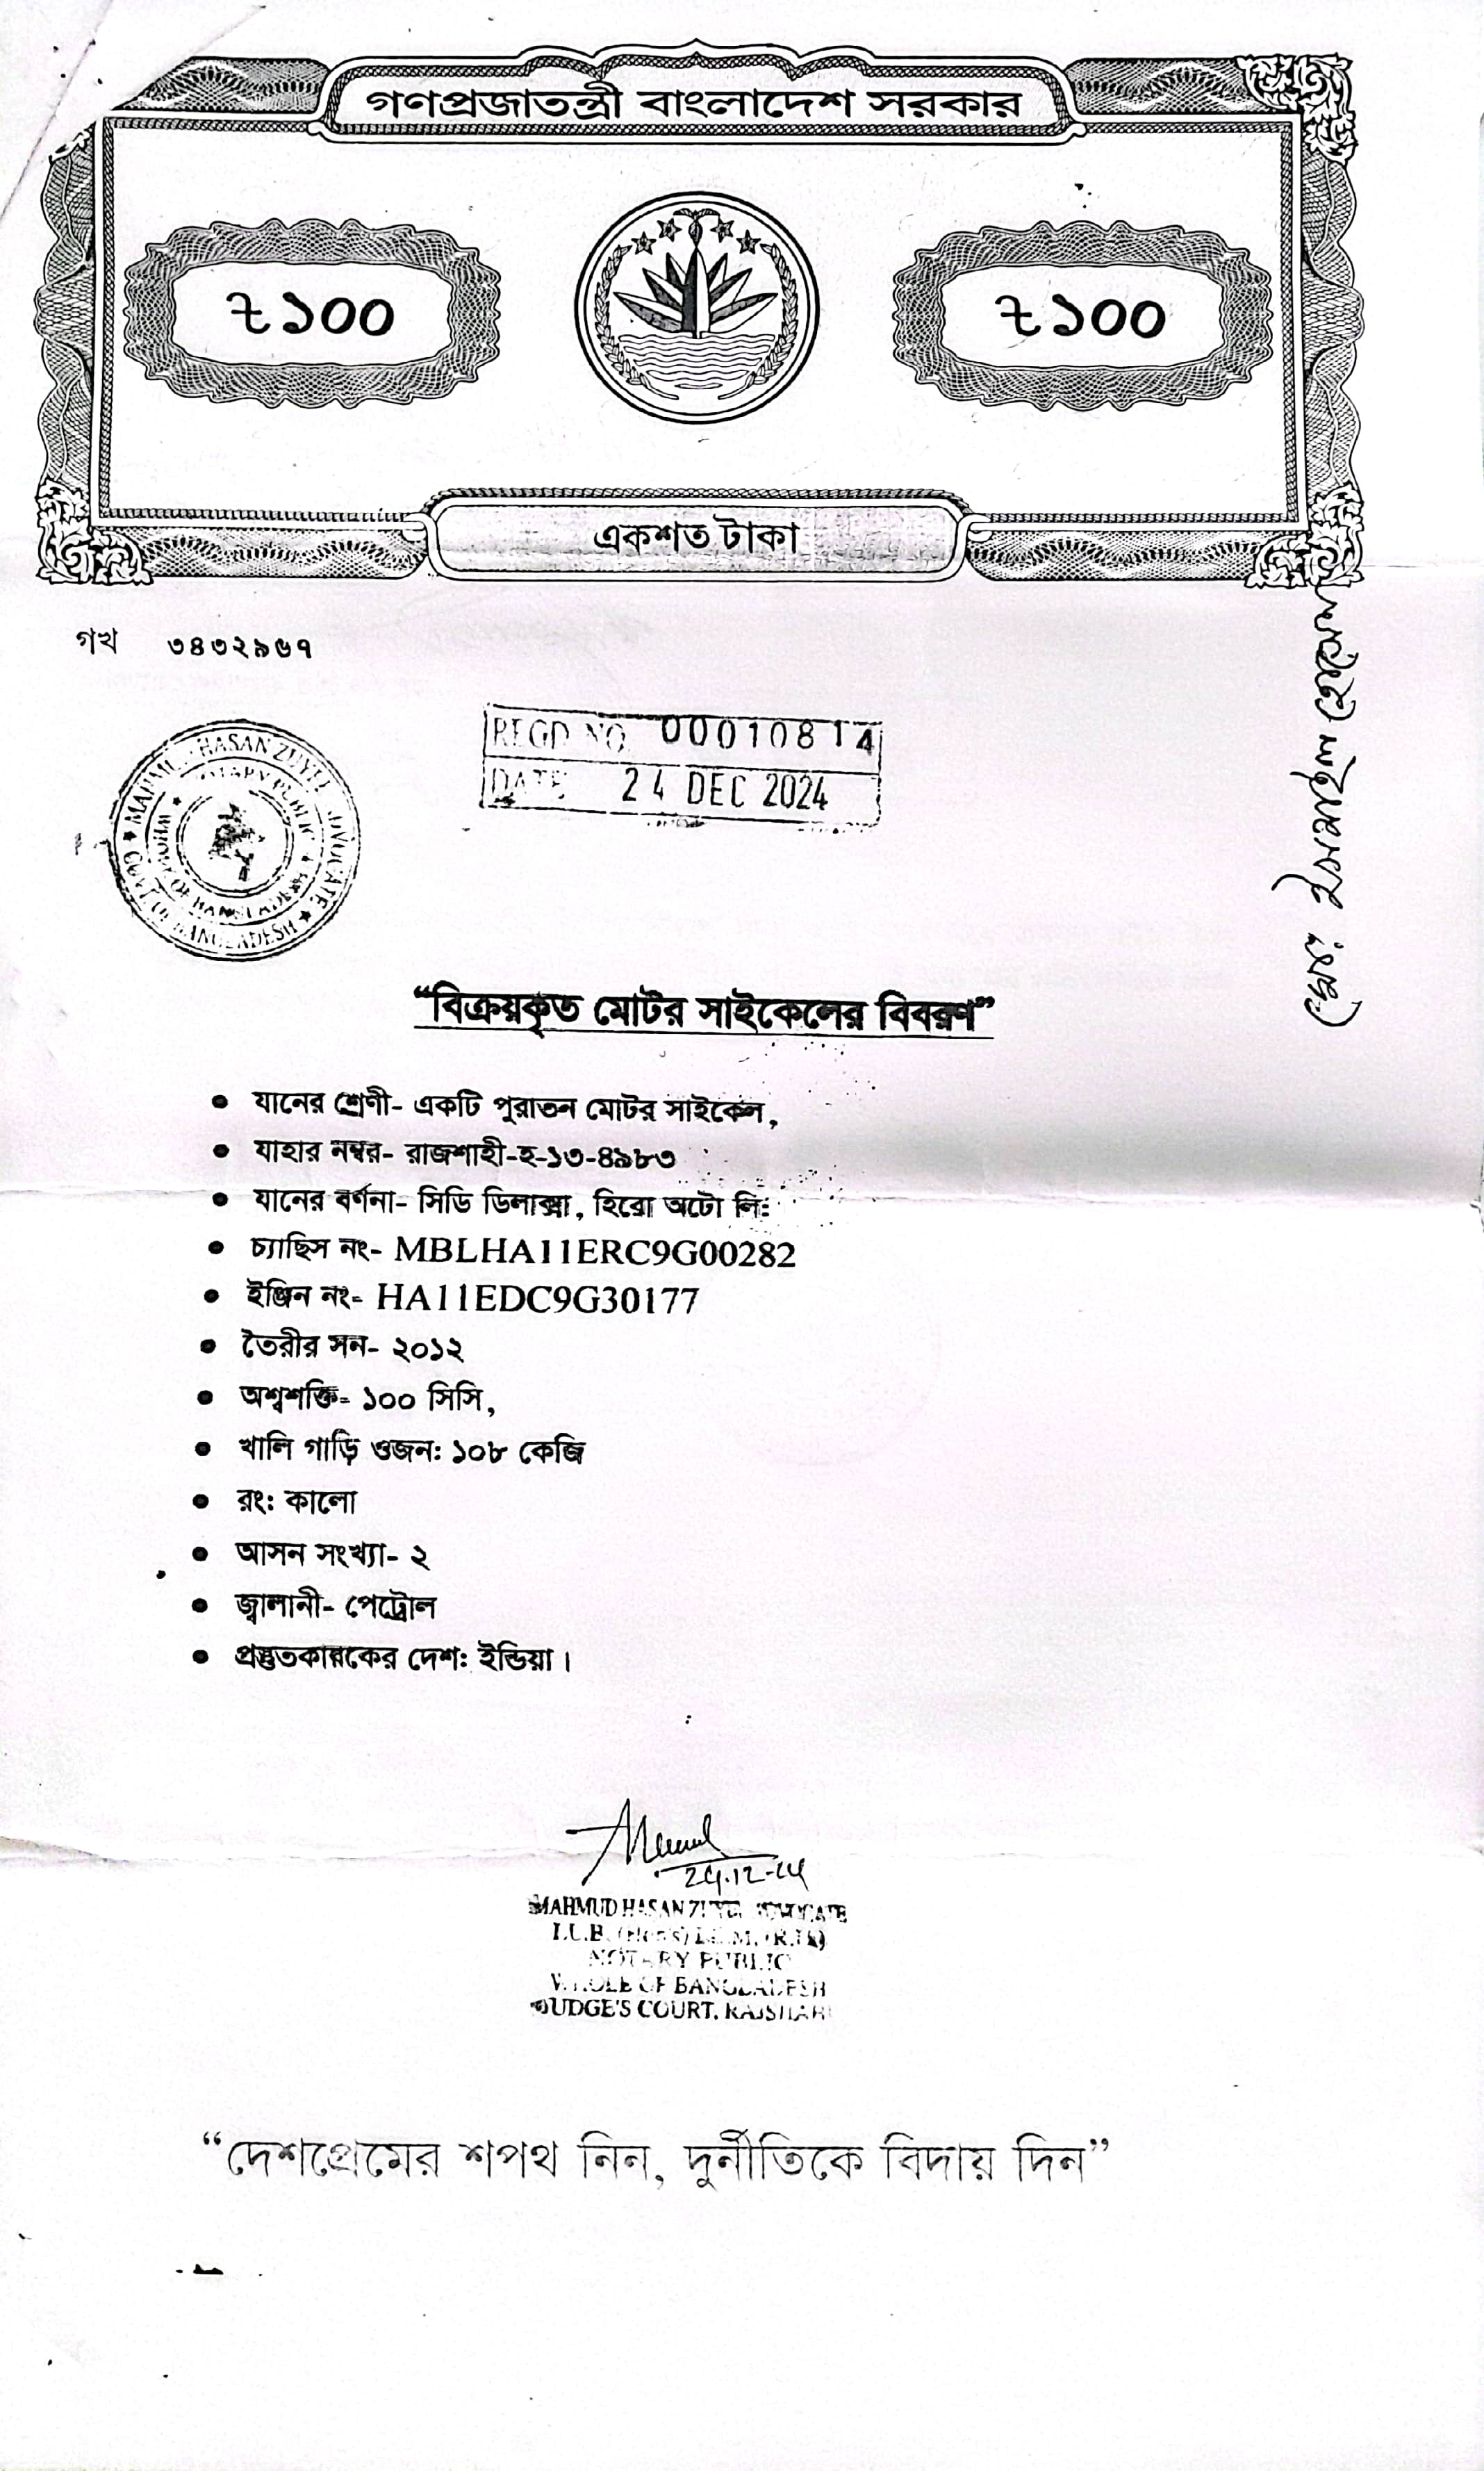 গণপ্রজাতন্ত্রী বাংলাদেশ সরকার
৳ ১০০
৳ ১০০
একশত টাকা
গখ ৩৪৩২৯৬৭
REGD NO. 00010814
DATE 24 DEC 2024
HASAN ZUYEL ADVOCATE
NOTARY PUBLIC
WHOLE OF BANGLADESH
BANGLADESH
মোঃ ইসমাইল হোসেন
“বিক্রয়কৃত মোটর সাইকেলের বিবরণ”
• যানের শ্রেণী- একটি পুরাতন মোটর সাইকেল,
• যাহার নম্বর- রাজশাহী-হ-১৩-৪৯৮৩
• যানের বর্ণনা- সিডি ডিলাক্স, হিরো অটো লি:
• চ্যাছিস নং- MBLHA11ERC9G00282
• ইঞ্জিন নং- HA11EDC9G30177
• তৈরীর সন- ২০১২
• অশ্বশক্তি- ১০০ সিসি,
• খালি গাড়ি ওজন: ১০৮ কেজি
• রং: কালো
• আসন সংখ্যা- ২
• জ্বালানী- পেট্রোল
• প্রস্তুতকারকের দেশ: ইন্ডিয়া।
24.12.24
MAHMUD HASAN ZUYEL ADVOCATE
NOTARY PUBLIC
WHOLE OF BANGLADESH
JUDGE'S COURT, RAJSHAHI
“দেশপ্রেমের শপথ নিন, দুর্নীতিকে বিদায় দিন”